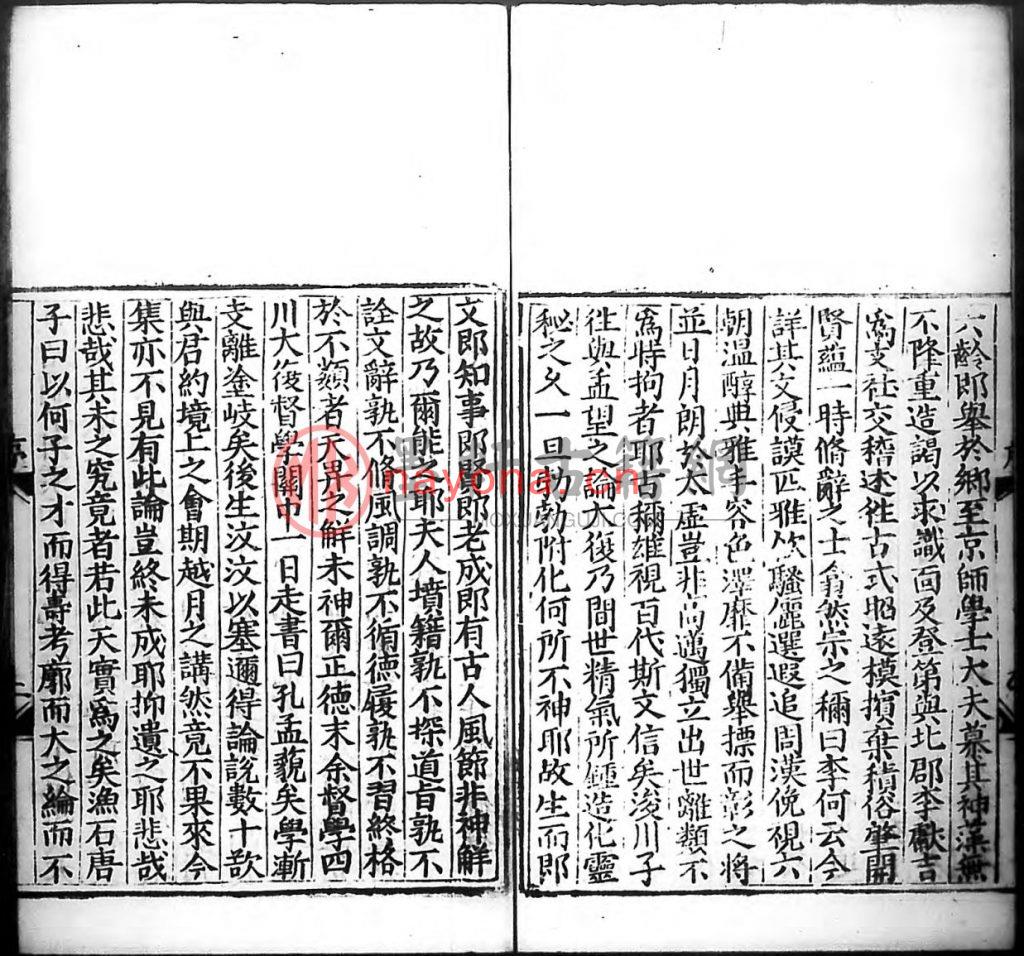 六齡即舉於鄉至京師學士大夫慕其神藻無
不降重造謁以求識面及登第與北郡李獻吉
爲文社交稽述徃古式昭遠模擯棄積俗肇開
賢蘊一時脩辭之士翕然宗之稱曰李何云今
詳其文侵謨匹雅欱騷儷選遐追周漢俛視六
朝溫醇典雅丰容色澤靡不備舉摽而彰之將
並日月朗於太虛豈非高邁獨立出世離類不
爲時拘者耶古稱雄視百代斯文信矣浚川子
徃與孟望之論大復乃間世精氣所鍾造化靈
秘之久一旦勃勃附化何所不神耶故生而即
文即知事即賢即老成即有古人風節非神解
之故乃爾能之耶夫人墳籍孰不探道旨孰不
詮文辭孰不脩風調孰不循德履孰不習終格
於不類者天畀之解未神爾正德末余督學四
川大復督學關中一日走書曰孔孟藐矣學漸
支離塗岐矣後生汶汶以塞邇得論說數十欵
與君約境上之會期越月之講然竟不果來今
集亦不見有此論豈終未成耶抑遺之耶悲哉
悲哉其未之究竟者若此天實爲之矣漁石唐
子曰以何子之才而得壽考廓而大之綸而不
序
二
nayona.cn